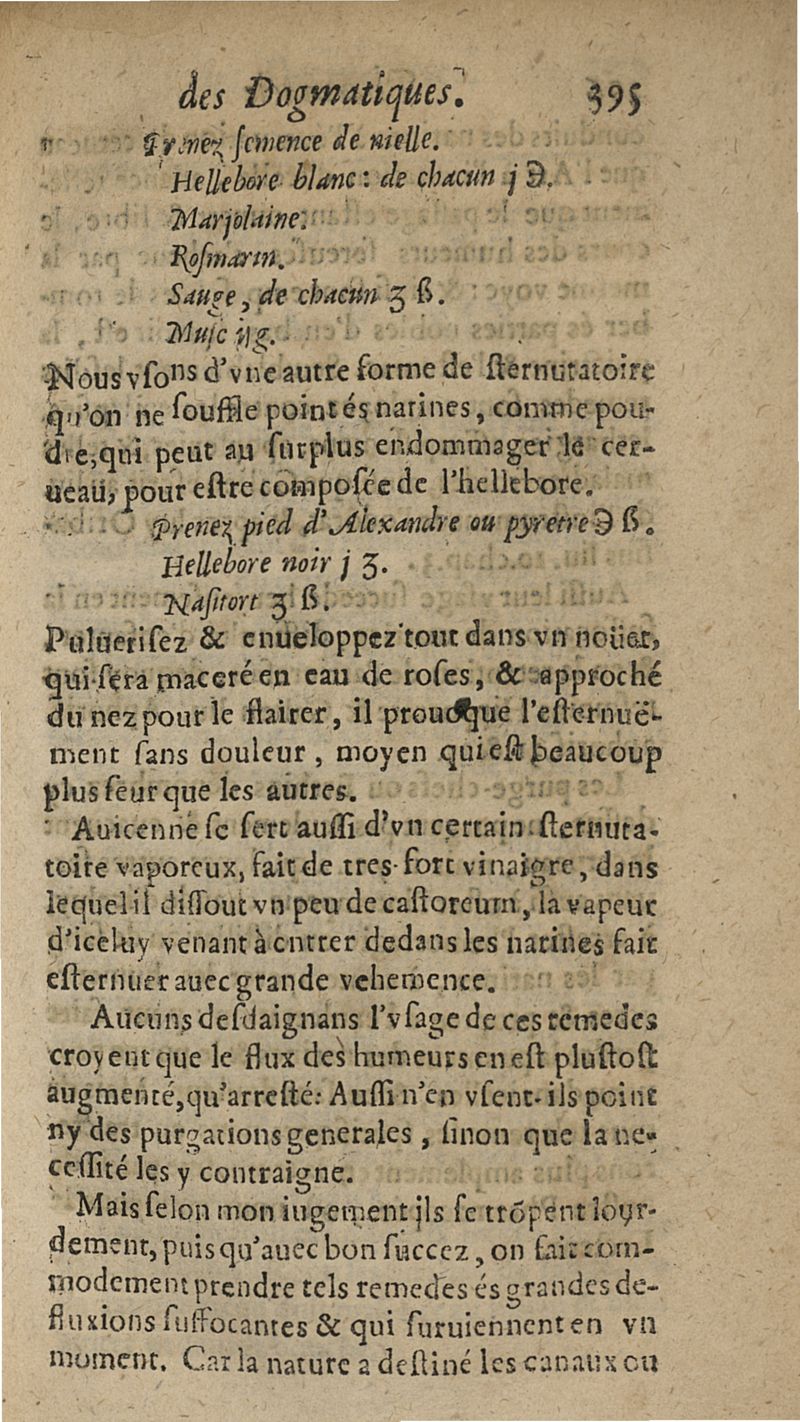 des Dogmatiques. 395
Prenez ſemence de nielle.
Hellebore blanc : de chacun j ℈.
Marjolaine.
Roſmarin.
Sauge, de chacun ʒ ß.
Muſc iij g.
Nous vſons d'vne autre forme de ſternutatoire
qu'on ne ſouffle point és narines, comme pou-
dre, qui peut au ſurplus endommager le cer-
ueau, pour eſtre compoſée de l'hellebore.
Prenez pied d'Alexandre ou pyretre ℈ ß.
Hellebore noir j ʒ.
Naſitort ʒ ß.
Pulueriſez & enueloppez tout dans vn noüet,
qui ſera maceré en eau de roſes, & approché
du nez pour le flairer, il prouoque l'eſternuë-
ment ſans douleur, moyen qui eſt beaucoup
plus ſeur que les autres.
Auicenne ſe ſert auſſi d'vn certain ſternuta-
toire vaporeux, fait de tres-fort vinaigre, dans
lequel il diſſout vn peu de caſtoreum, la vapeur
d'iceluy venant à entrer dedans les narines fait
eſternuer auec grande vehemence.
Aucuns deſdaignans l'vſage de ces remedes
croyent que le flux des humeurs en eſt pluſtoſt
augmenté, qu'arreſté: Auſſi n'en vſent-ils point
ny des purgations generales, ſinon que la ne-
ceſſité les y contraigne.
Mais ſelon mon iugement ils ſe trõpent lour-
dement, puis qu'auec bon ſuccez, on fait com-
modement prendre tels remedes és grandes de-
fluxions ſuffocantes & qui ſuruiennent en vn
moment. Car la nature a deſtiné les canaux ou